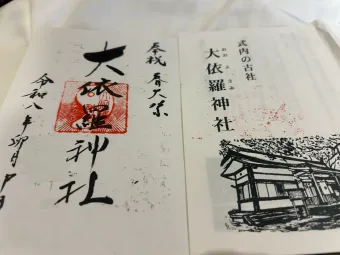 奉祝 春大祭
大依羅神社
令和八年卯月
式内の古社
大依羅神社